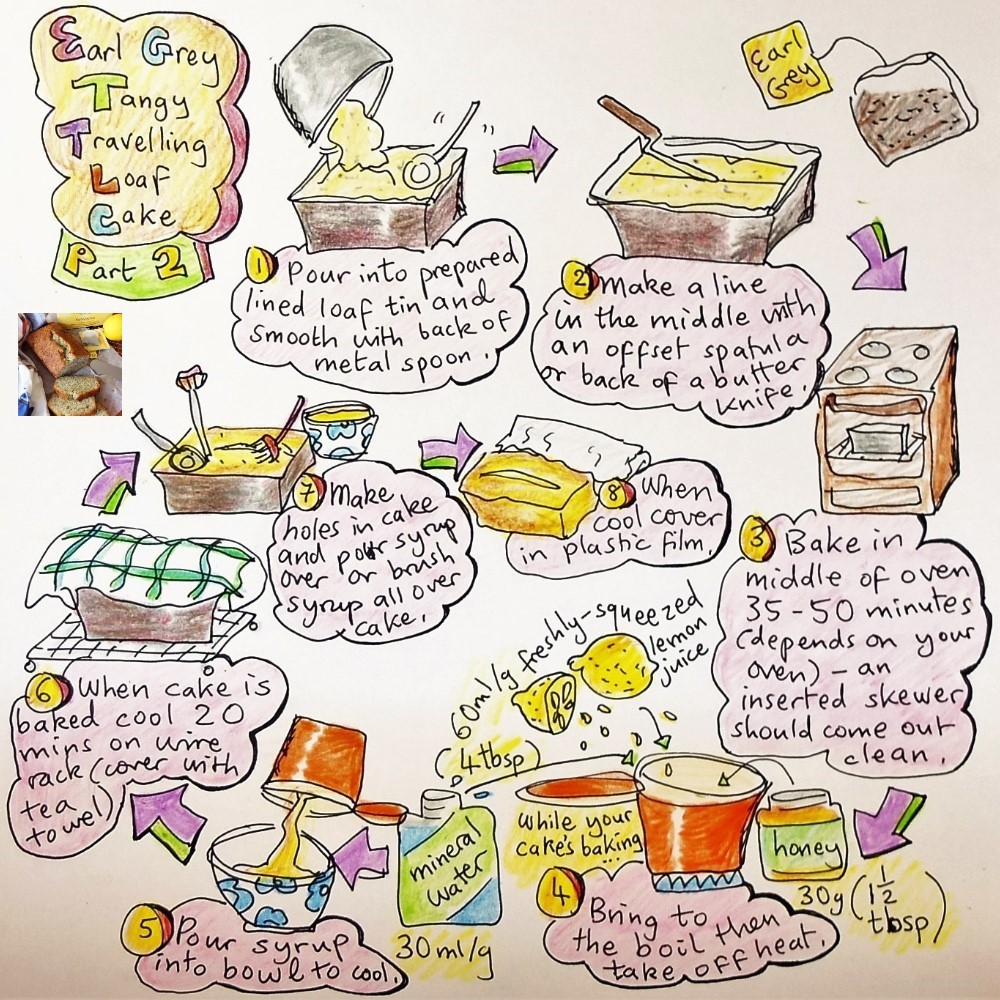 Earl Grey
Tangy
Travelling
Loaf
Cake
Part 2
Earl
Grey
1 Pour into prepared
lined loaf tin and
smooth with back of
metal spoon.
2 Make a line
in the middle with
an offset spatula
or back of a butter
knife.
3 Bake in
middle of oven
35-50 minutes
(depends on your
oven) - an
inserted skewer
should come out
clean.
60ml/g freshly-squeezed
lemon
juice
(4tbsp)
mineral
water
30ml/g
while your
cake's baking
...
honey
30g (1 1/2
tbsp)
4 Bring to
the boil then
take off heat.
5 Pour syrup
into bowl to cool.
6 When cake is
baked cool 20
mins on wire
rack (cover with
tea
towel)
7 Make
holes in cake
and pour syrup
over or brush
syrup all over
cake.
8 When
cool cover
in plastic film.